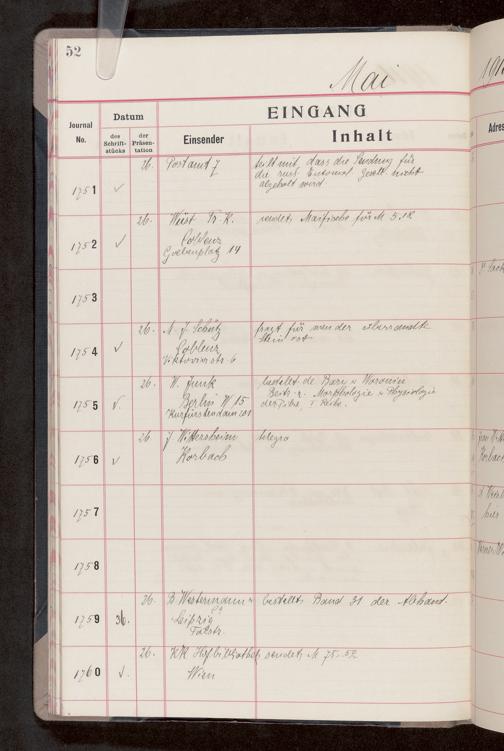 52
Mai
191
EINGANG
Journal No.
Datum
des Schrift-stücks
der Präsen-tation
Einsender
Inhalt
Adres
1751
26. Postamt 7
teilt mit, dass die Sendung für
die russ. Entomol. Gesell. nicht
abgeholt wird
1752
26. Wüst Fr. K.
Coblenz
Goebenplatz 14
sendet Maifische für M 5.18
1753
1754
26. A. J. Schütz
Coblenz
Viktoriastr. 6
fragt für wen der
Stein ist
1755
26. W. Junk
Berlin W 15
Kurfürstendamm 201
bestellt de Bary u Woronin
Beitr. z. Morphologie u Physiologie
der Pilze, Reihe.
1756
26 J Wittersheim
Korbach
Korbach
1757
hier
1758
1759
26. B. Westermann u
Co
Leipzig
Talstr.
bestellt Band 31 der Abhand.
1760
26. KK Hofbibliothek
Wien
sendet M 75.52